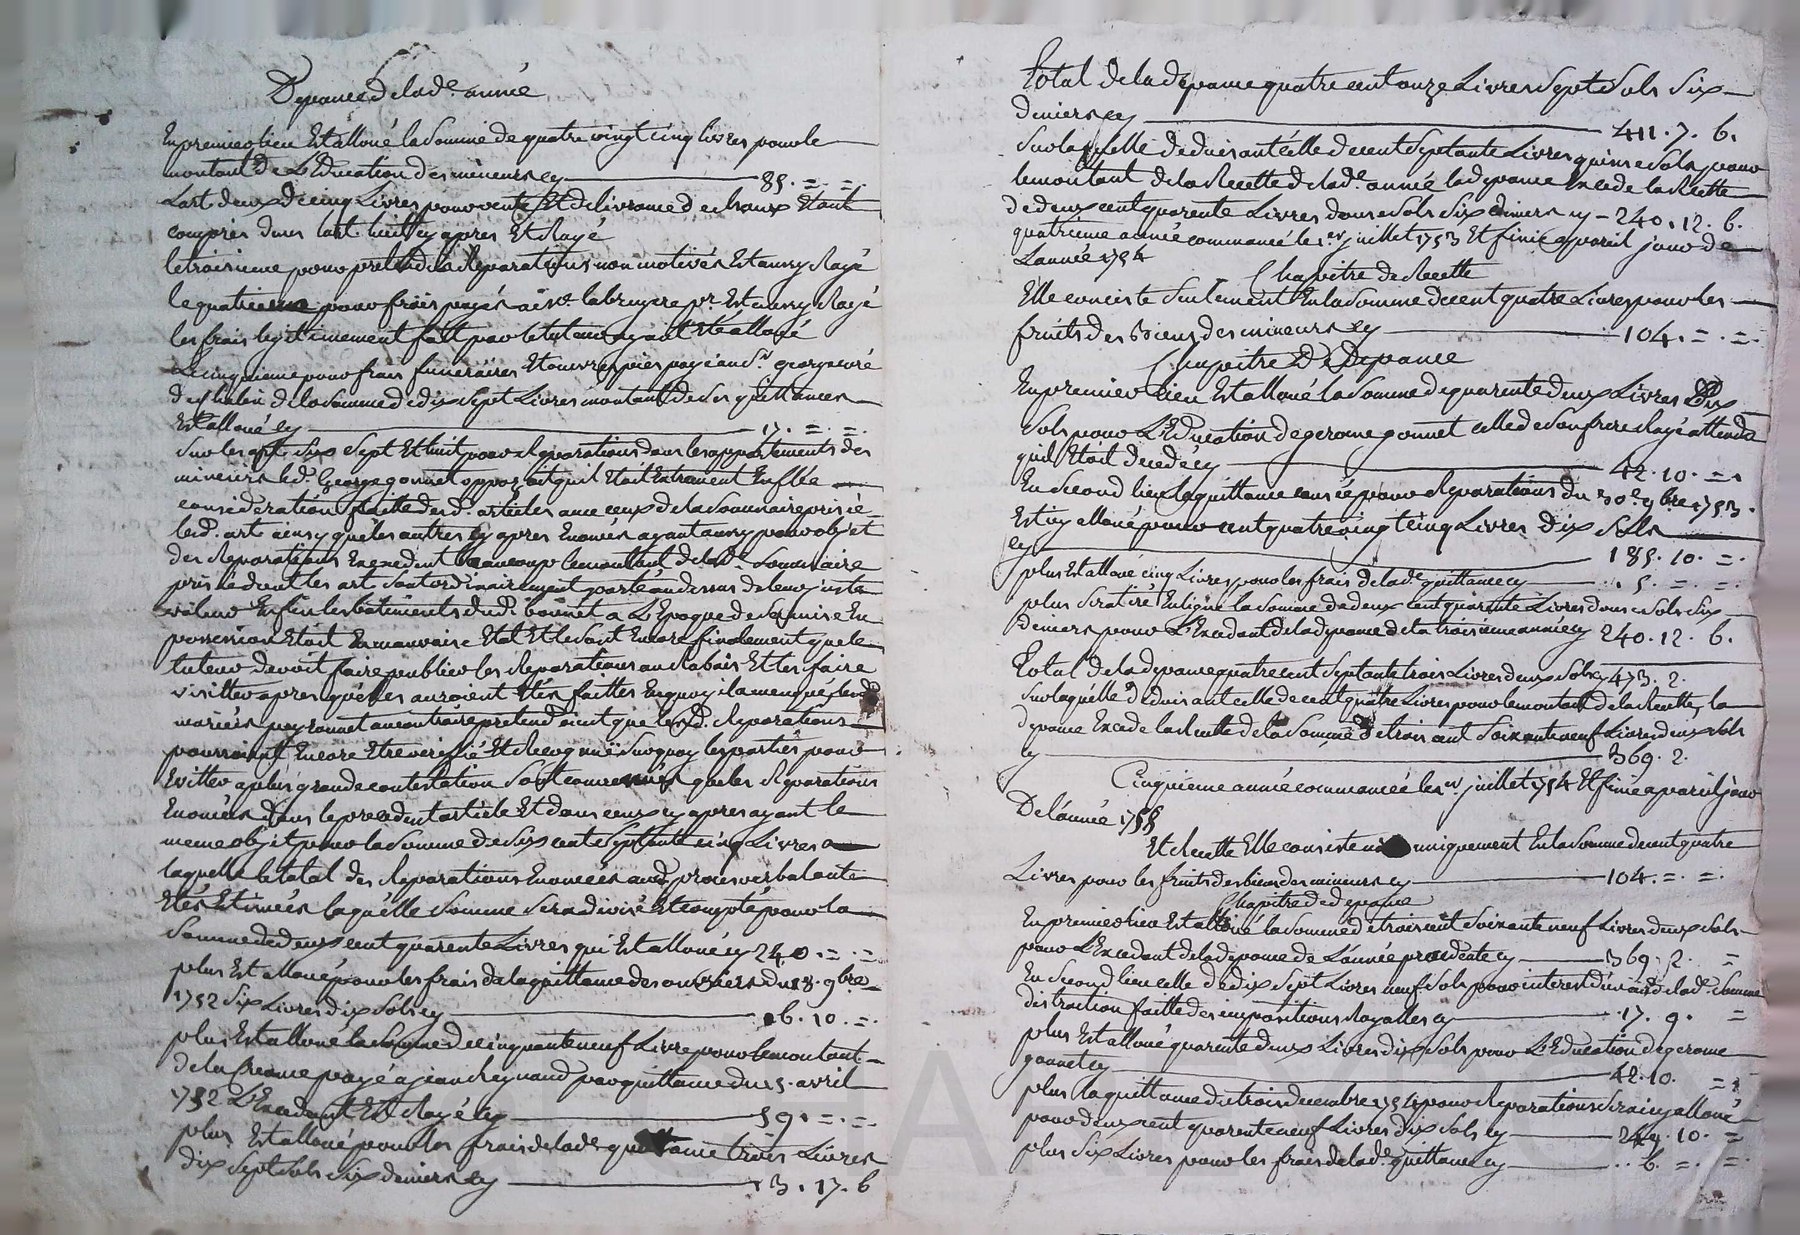 Depance de lad.e année
En premier lieu Est alloué la Somme de quatre vingt cinq livres pour le
montant de L'Education des mineurs cy 85. =. =.
L'art. deux de cinq Livres pour vente Et delivrance de chaux Etant
compris dans l'art. huit cy apres Est Rayé
le troisieme pour pretendues Reparations non motivés Est aussy Rayé
le quatrieme pour frais payés a Me labruyere pr. Est aussy Rayé
les frais legitimement fait pour le tuteur ayant Eté alloué
Le cinquieme pour frais funeraires Et oeuvres pies payé au Sr. george curé
de de la Somme de dix Sept Livres montant de Ses quittances
Est alloué cy 17. =. =.
Sur les art. Six Sept Et huit pour Reparations dans les appartements des
mineurs led. George gonnet opposoit qu'il Etoit Entrement Enflée
consideration faitte desd. articles avec ceux de la Sommaire prisée
led. art. ainsy que les autres cy apres Enoncés ayant aussy pour objet
des Reparations Excedent beaucoup le montant de lad.e Sommaire
prisée dont les art. Sont ordinairement portés au dessus de leur juste
valeur Enfin les bâtiments dud. bonnet a L'Epoque de Sa mise En
possession Etoit En mauvaise Etat Et le Sont Encore finalement que le
tuteur devoit faire publier les Reparations au Rabais Et les faire
visitter apres qu'elles auroient Etés faittes En quoy il a manqué lesd.
mariés peyronnet au contraire pretendoient que lesd. Reparations
pouvoient Encore Etre verifié Et Recognuës Sur quoy les parties pour
Evitter a plus grande contestation Sont convenuës que les Reparations
Enoncées dans le precedent article Et dans ceux cy apres ayant le
meme objet pour la Somme de Six cent Septante cinq Livres a
laquelle le total des Reparations Enoncées aud. proces verbal ont
Etés Estimées laquelle Somme Sera divisé Et compté pour la
Somme de deux cent quarente Livres qui Est alloué cy 240. =. =
plus Est alloué pour les frais de la quittance des ouvriers du 18. 9bre
1752 Six Livres dix Sols cy 6. 10. =.
plus Est alloué la Somme de cinquante neuf Livre pour le montant
de la payé a jean Reynaud par quittance du 5. avril
1752 L'Excedent Est Rayé cy 59. =. =
plus Est alloué pour les frais de lad.e quittance trois Livres
dix Sept Sols Six deniers cy 3. 17. 6
Total de la depance quatre cent onze Livres Sept Sols Six
deniers cy 411. 7. 6.
Sur laquelle deduisant celle de cent Septante Livres quinse Sols pour
le montant de la Recette de lad.e année la depance Excede la Recette
de deux cent quarente Livres douse Sols Six deniers cy 240. 12. 6.
quatrieme année commancé le 1er juillet 1753 Et finie a pareil jour de
L'année 1754
Chapitre de Recette
Elle conciste Seulement En la Somme de cent quatre Livres pour les
fruits des Biens des mineurs cy 104. =. =.
Chapitre De Depance
En premier lieu Est alloué la Somme de quarente deux Livres Dix
Sols pour L'Education de gerome gonnet celle de Son frere Rayé attendu
quil Etoit decedé cy 42. 10. =.
En Second lieu la quittance censée pour Reparations du 30e 9bre 1753.
Est icy alloué pour cent quatre vingt cinq Livres dix Sols
cy 185. 10. =.
plus Est alloué cinq Livres pour les frais de lad.e quittance cy 5. =. =.
plus Sera tiré En ligne la Somme de deux cent quarente Livres douse Sols Six
deniers pour L'Excedant de la depance de la troisieme année cy 240. 12. 6.
Total de la depance quatre cent Septante trois Livres deux Sols cy 473. 2.
Sur laquelle deduisant celle de cent quatre Livres pour le montant de la Recette, la
depance Excede la Recette de la Somme De trois cent Soixante neuf Livres deux Sols
cy 369. 2.
Cinquieme année commancée le 1er juillet 1754 Et finie a pareil jour
De l'année 1755
Et Recette Elle consiste uniquement En la Somme de cent quatre
Livres pour les fruits des biens des mineurs cy 104. =. =.
Chapitre de depance
En premier lieu Est alloué la Somme de trois cent Soixante neuf Livres deux Sols
pour L'Excedant de la depance de L'année precedente cy 369. 2. =
En Second lieu celle de dix Sept Livres neuf Sols pour interest d'un an de lad.e Somme
distraction faitte des impositions Royalles cy 17. 9. =
plus Est alloué quarente deux Livres dix Sols pour L'Education de gerome
gonnet cy 42. 10. =.
plus la quittance du trois decembre 1754 pour Reparations Sera icy alloué
pour deux cent quarente neuf Livres dix Sols cy 249. 10. =
plus Six Livres pour les frais de lad.e quittance cy 6. =. =.